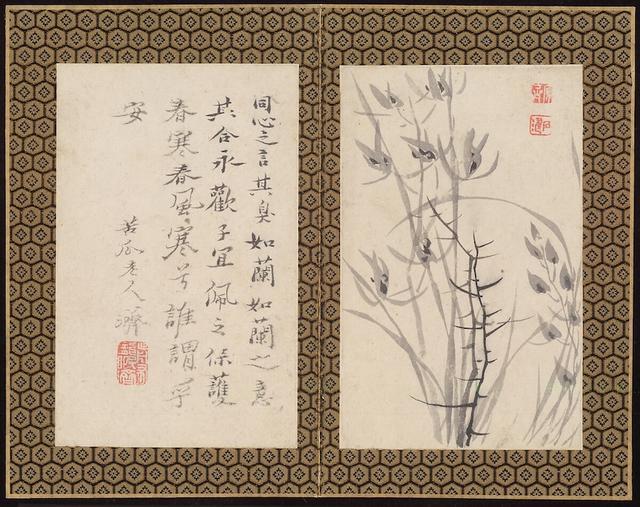 同心之言其臭如蘭如蘭之意
其合永歡予宜佩之保護
春寒春風寒兮誰謂
安
苦瓜老人濟